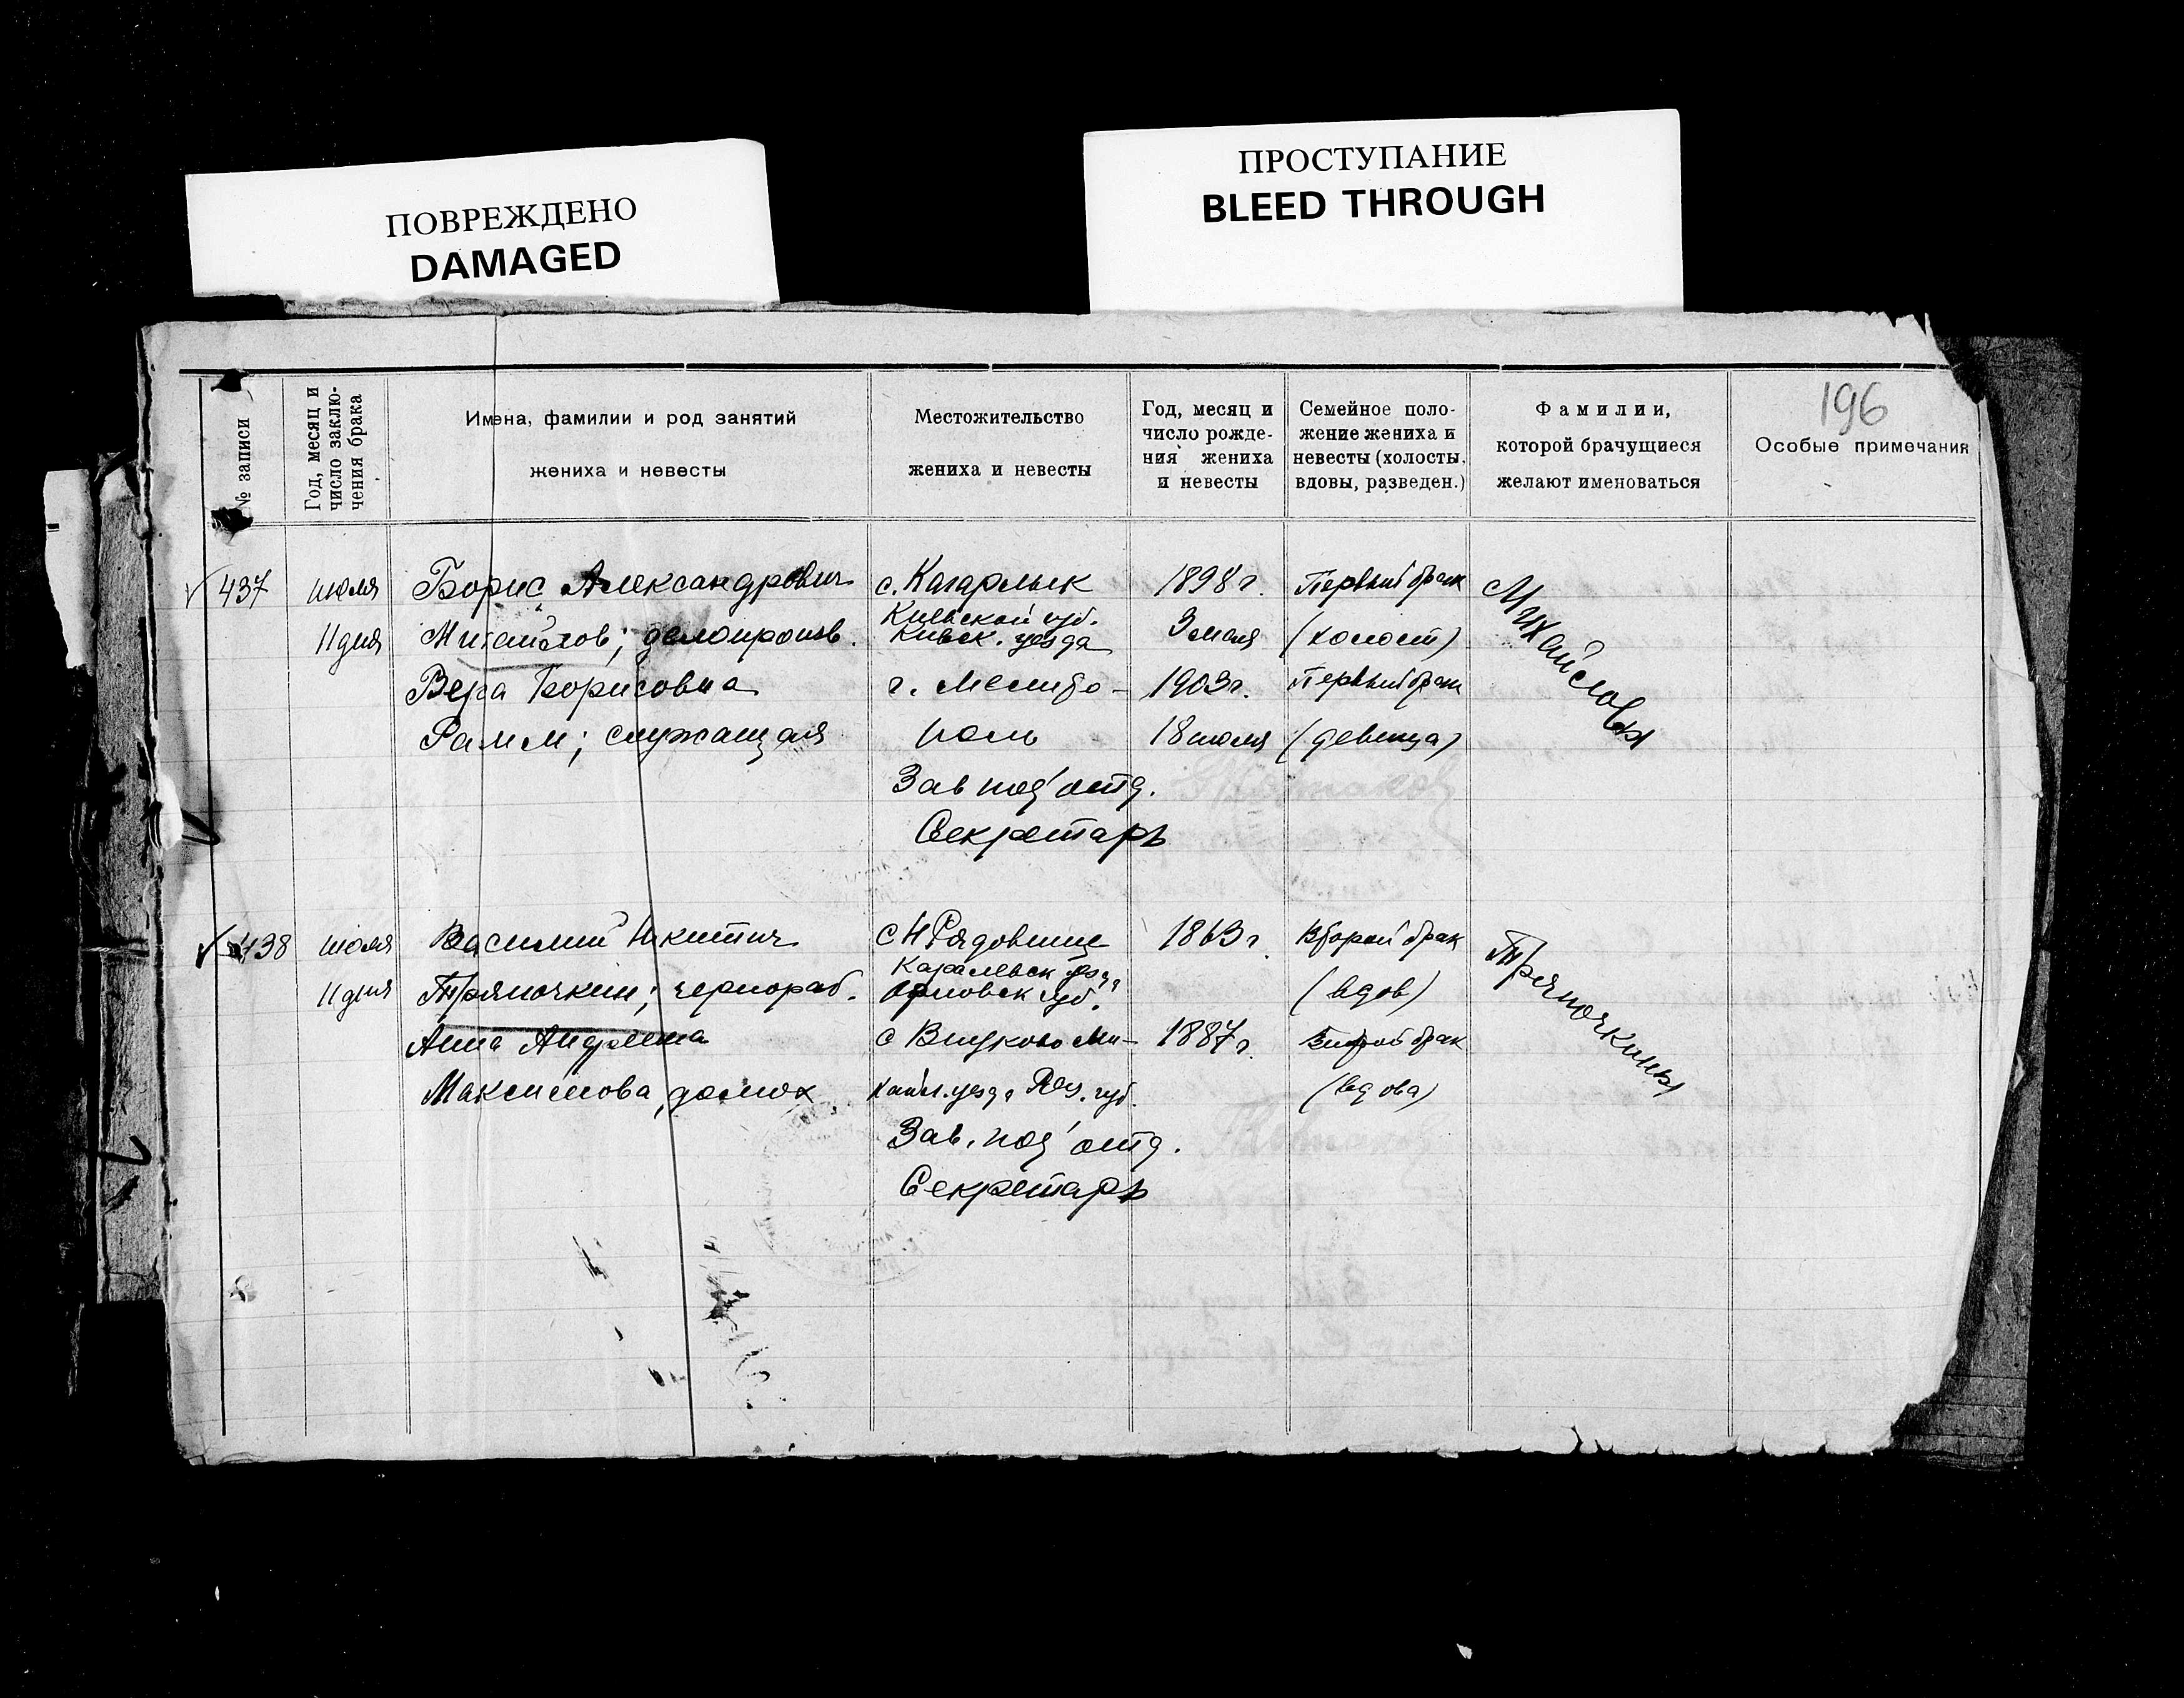 ПОВРЕЖДЕНО
DAMAGED
ПРОСТУПАНИЕ
BLEED THROUGH
196
№ записи
Год, месяц и
число заклю-
чения брака
Имена, фамилии и род занятий
жениха и невесты
Местожительство
жениха и невесты
Год, месяц и
число рожде-
ния жениха
и невесты
Семейное поло-
жение жениха и
невесты (холосты,
вдовы, разведен.)
Фамилии,
которой брачущиеся
желают именоваться
Особые примечания
437 июля Борис Александрович с. Кагарлык 1898 г. Первый брак Михайловы
Киевской губ.
11 дня Михайлов; делопроизв. Киевск. уезда 3 мая (холост)
Вера Борисовна г. Мелито- 1903 г. Первый брак
Рамм; служащая поль 18 июля (девица)
Зав под'отд.
Секретарь
438 июля Василий Никитич с Н Рядовище 1863 г. Второй брак Тряпочкины
11 дня Тряпочкин; чернораб. Орловск губ. (вдов)
Анна Андреевна с 1887 г. Второй брак
Максимова, домох уезда Ряз. губ. (вдова)
Зав. под'отд.
Секретарь